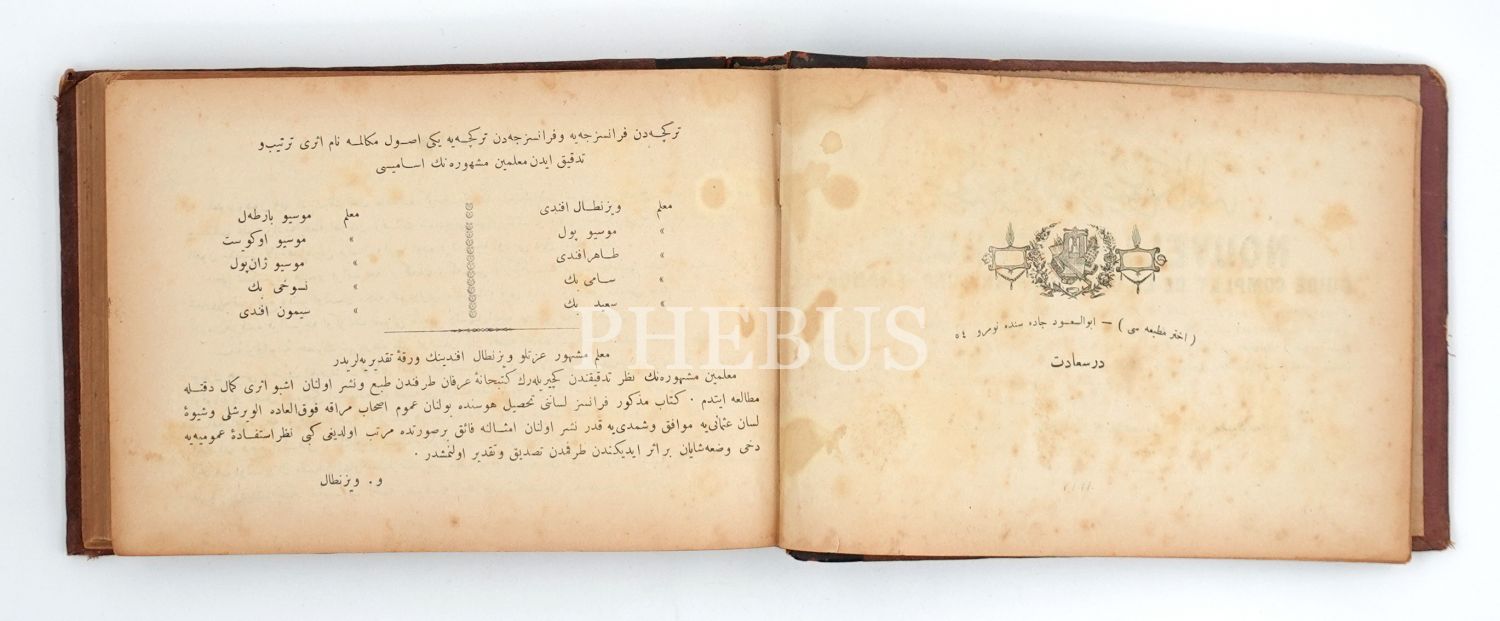 تركجه‌دن فرانسزجه‌يه و فرانسزجه‌دن تركجه‌يه يكی اصول مكالمه نام اثری ترتيب و
تدقيق ايدن معلمين مشهوره‌نك اساميسی
معلم ويزنطال افندی
» موسيو پول
» طاهر افندی
» سامی بك
» سعيد بك
معلم موسيو بارطه‌ل
» موسيو اوكوست
» موسيو ژان پول
» نسوخی بك
» سيمون افندی
معلم مشهور عزتلو ويزنطال افندينك ورقهٔ تقديريه‌لريدر
معلمين مشهوره‌نك نظر تدقيقندن كچيريله‌رك كتبخانهٔ عرفان طرفندن طبع و نشر اولنان اشبو اثری كمال دقتله
مطالعه ايتدم . كتاب مذكور فرانسز لساننی تحصيل هوسنده بولنان عموم اصحاب مراقه فوق‌العاده الويرشلی وشيوهٔ
لسان عثمانی‌يه موافق وشمدی‌يه قدر نشر اولنان امثالنه فائق بر صورتده مرتب اولديغی كبی نظر استفادهٔ عموميه‌يه
دخی وضعه شايان بر اثر ايديكندن طرفمدن تصديق و تقدير اولنمشدر .
و . ويزنطال
( اختر مطبعه سی ) — ابوالسعود جاده سنده نومرو ٥٤
درسعادت
PHEBUS